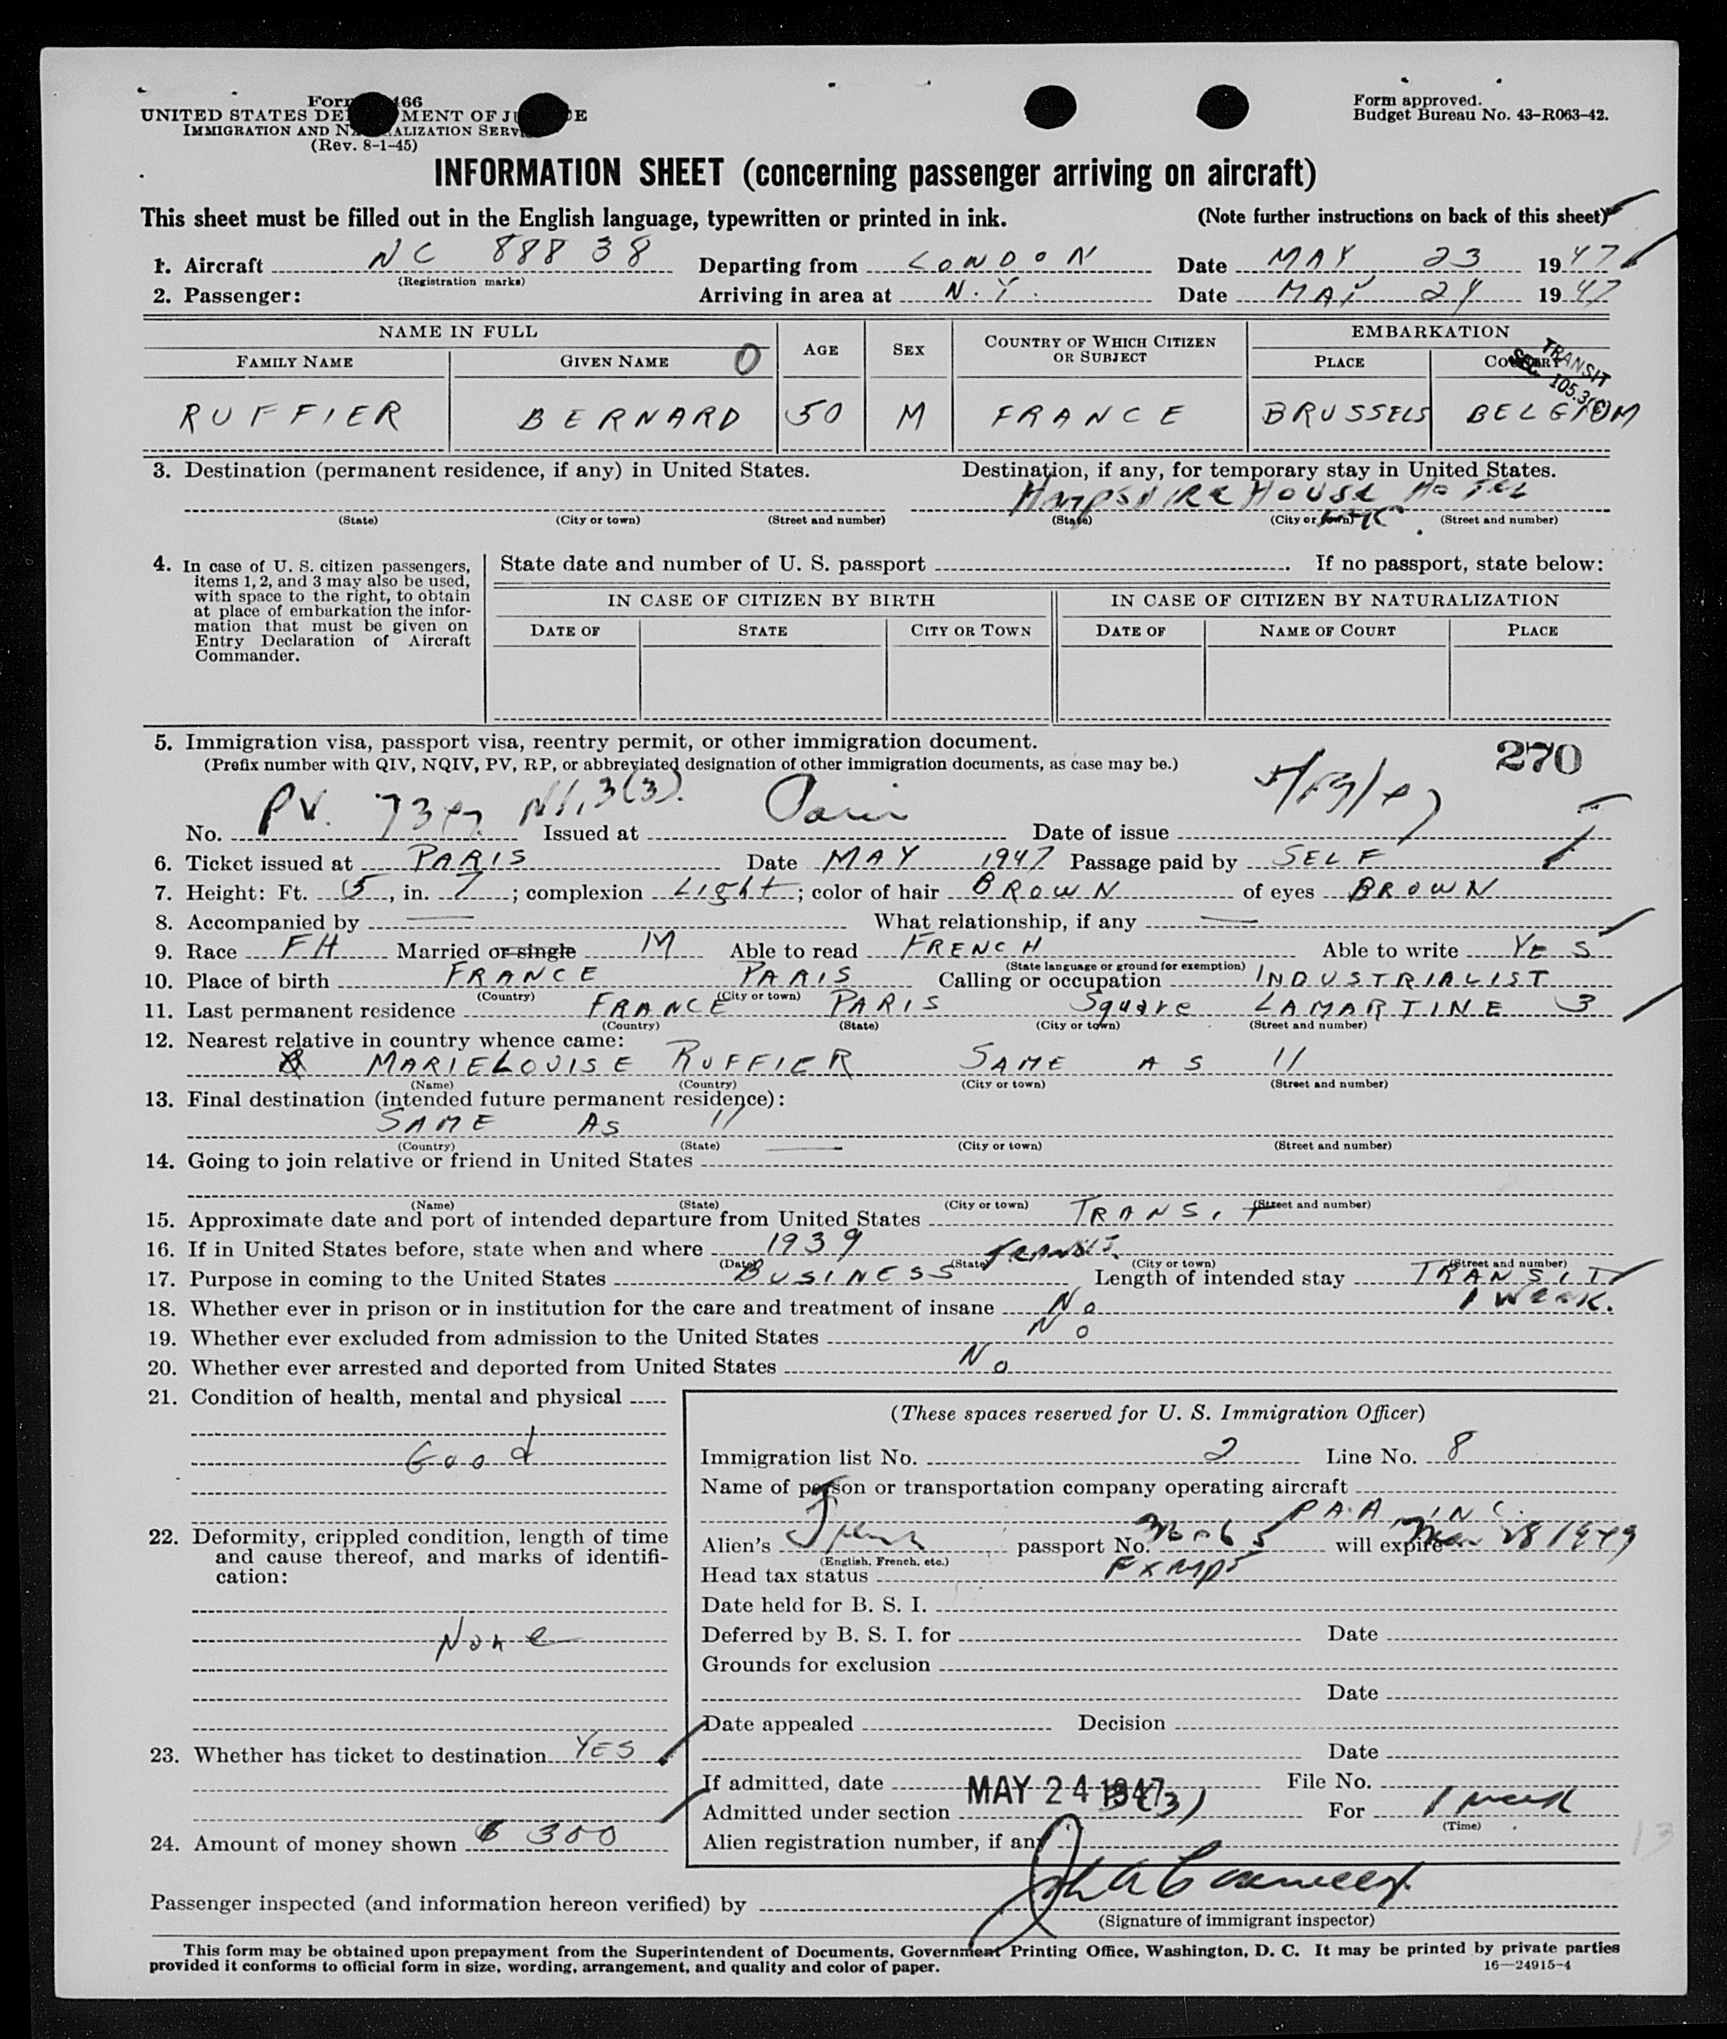 Form 466
UNITED STATES DEPARTMENT OF JUSTICE
IMMIGRATION AND NATURALIZATION SERVICE
(Rev. 8-1-45)
Form approved.
Budget Bureau No. 43-R063-42.
INFORMATION SHEET (concerning passenger arriving on aircraft)
This sheet must be filled out in the English language, typewritten or printed in ink. (Note further instructions on back of this sheet)
1. Aircraft NC 88838 Departing from LONDON Date MAY 23 1947
(Registration marks)
2. Passenger: Arriving in area at N.Y. Date MAY 24 1947
NAME IN FULL AGE SEX COUNTRY OF WHICH CITIZEN OR SUBJECT EMBARKATION
FAMILY NAME GIVEN NAME 0 PLACE COUNTRY
TRANSIT
SEC. 105.3(C)
RUFFIER BERNARD 50 M FRANCE BRUSSELS BELGIUM
3. Destination (permanent residence, if any) in United States. Destination, if any, for temporary stay in United States.
HAMPSHIRE HOUSE HOTEL
(State) (City or town) (Street and number) (State) (City or town) (Street and number)
4. In case of U. S. citizen passengers, items 1, 2, and 3 may also be used, with space to the right, to obtain at place of embarkation the information that must be given on Entry Declaration of Aircraft Commander.
State date and number of U. S. passport If no passport, state below:
IN CASE OF CITIZEN BY BIRTH IN CASE OF CITIZEN BY NATURALIZATION
DATE OF STATE CITY OR TOWN DATE OF NAME OF COURT PLACE
5. Immigration visa, passport visa, reentry permit, or other immigration document.
(Prefix number with QIV, NQIV, PV, RP, or abbreviated designation of other immigration documents, as case may be.)
270
No. PV. 3(3). Issued at Paris Date of issue
6. Ticket issued at PARIS Date MAY 1947 Passage paid by SELF
7. Height: Ft. 5, in. 7; complexion Light; color of hair BROWN of eyes BROWN
8. Accompanied by — What relationship, if any —
9. Race FH Married or single M Able to read FRENCH Able to write YES
(State language or ground for exemption)
10. Place of birth FRANCE PARIS Calling or occupation INDUSTRIALIST
(Country) (City or town)
11. Last permanent residence FRANCE PARIS Square LAMARTINE 3
(Country) (State) (City or town) (Street and number)
12. Nearest relative in country whence came:
MARIELOUISE RUFFIER SAME AS 11
(Name) (Country) (City or town) (Street and number)
13. Final destination (intended future permanent residence):
SAME AS 11
(Country) (State) (City or town) (Street and number)
14. Going to join relative or friend in United States —
(Name) (State) (City or town) (Street and number)
15. Approximate date and port of intended departure from United States TRANSIT
16. If in United States before, state when and where 1939 TRANSIT.
(Date) (State) (City or town) (Street and number)
17. Purpose in coming to the United States BUSINESS Length of intended stay TRANSIT
1 Week.
18. Whether ever in prison or in institution for the care and treatment of insane No
19. Whether ever excluded from admission to the United States No
20. Whether ever arrested and deported from United States No
21. Condition of health, mental and physical
Good
22. Deformity, crippled condition, length of time and cause thereof, and marks of identification:
None
23. Whether has ticket to destination YES
24. Amount of money shown $ 300
(These spaces reserved for U. S. Immigration Officer)
Immigration list No. 2 Line No. 8
Name of person or transportation company operating aircraft
P.A.A. INC.
Alien's French passport No. will expire 28 1949
(English, French, etc.)
Head tax status Exmpt
Date held for B. S. I.
Deferred by B. S. I. for Date
Grounds for exclusion
Date
Date appealed Decision
Date
If admitted, date MAY 24 1947 File No.
Admitted under section 3(3) For 1 week
(Time)
Alien registration number, if any
13
Passenger inspected (and information hereon verified) by
(Signature of immigrant inspector)
This form may be obtained upon prepayment from the Superintendent of Documents, Government Printing Office, Washington, D. C. It may be printed by private parties
provided it conforms to official form in size, wording, arrangement, and quality and color of paper. 16—24915-4